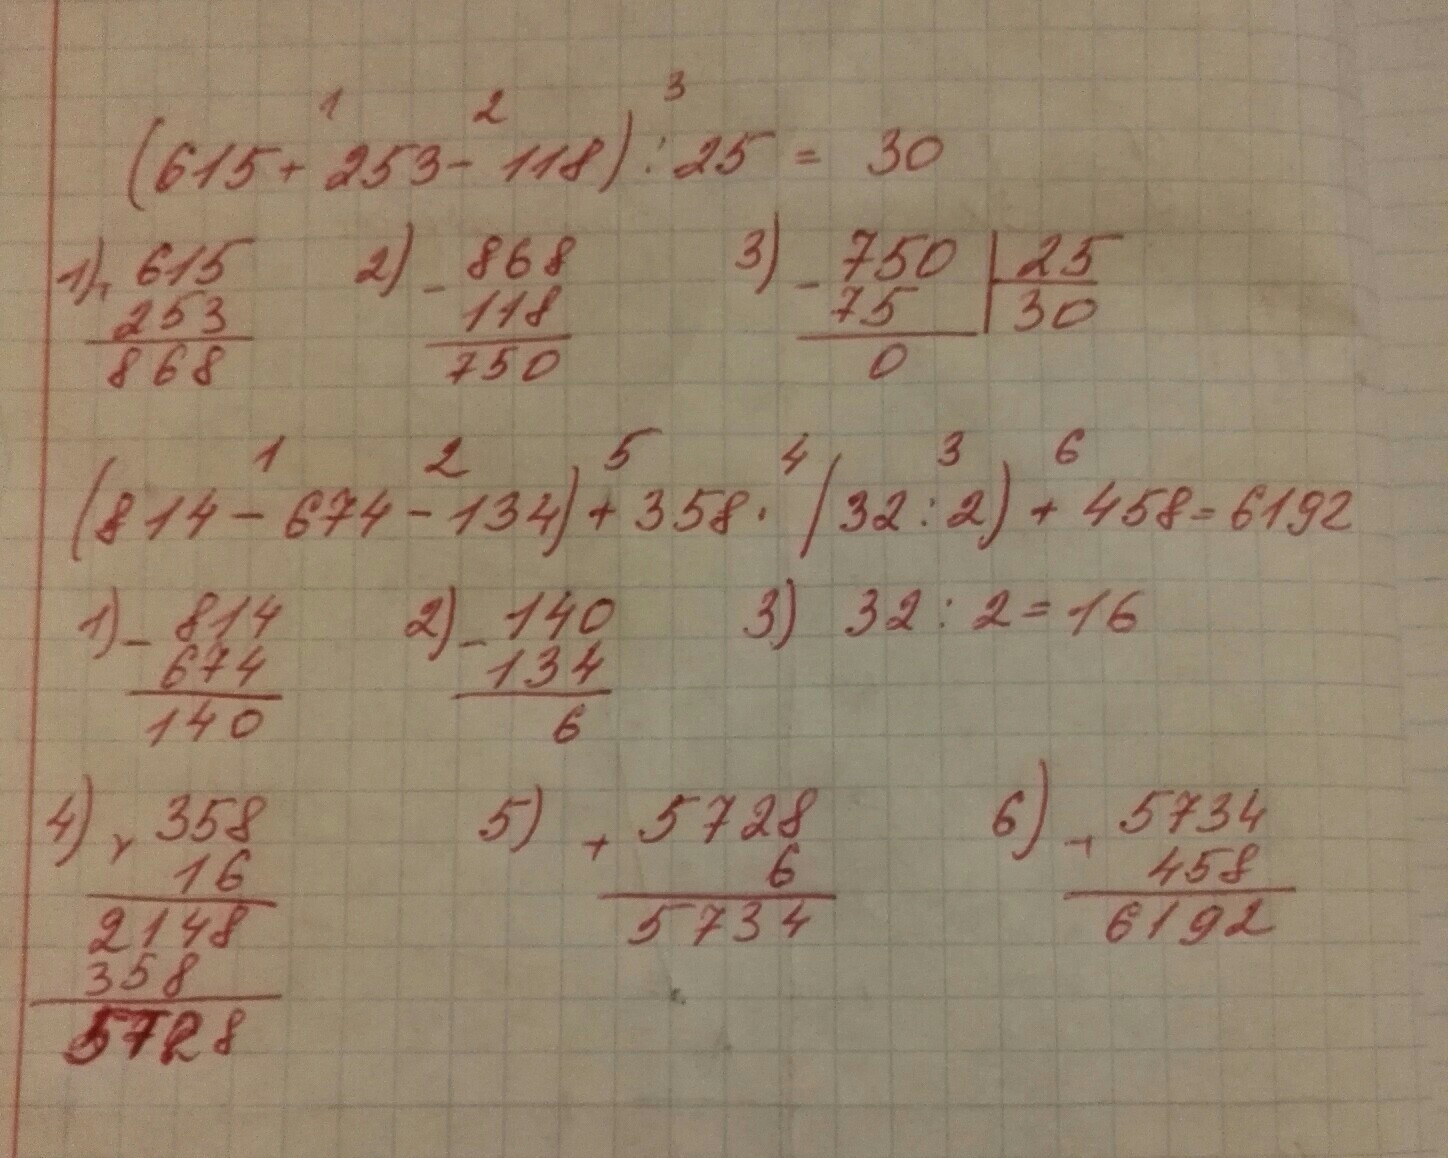 1 2 3
(615 + 253 - 118) : 25 = 30
1) + 615 2) - 868 3) - 750 | 25
253 118 75 30
868 750 0
1 2 5 4 3 6
(814 - 674 - 134) + 358 · (32 : 2) + 458 = 6192
1) - 814 2) - 140 3) 32 : 2 = 16
674 134
140 6
4) x 358 5) + 5728 6) + 5734
16 6 458
2148 5734 6192
358
5728